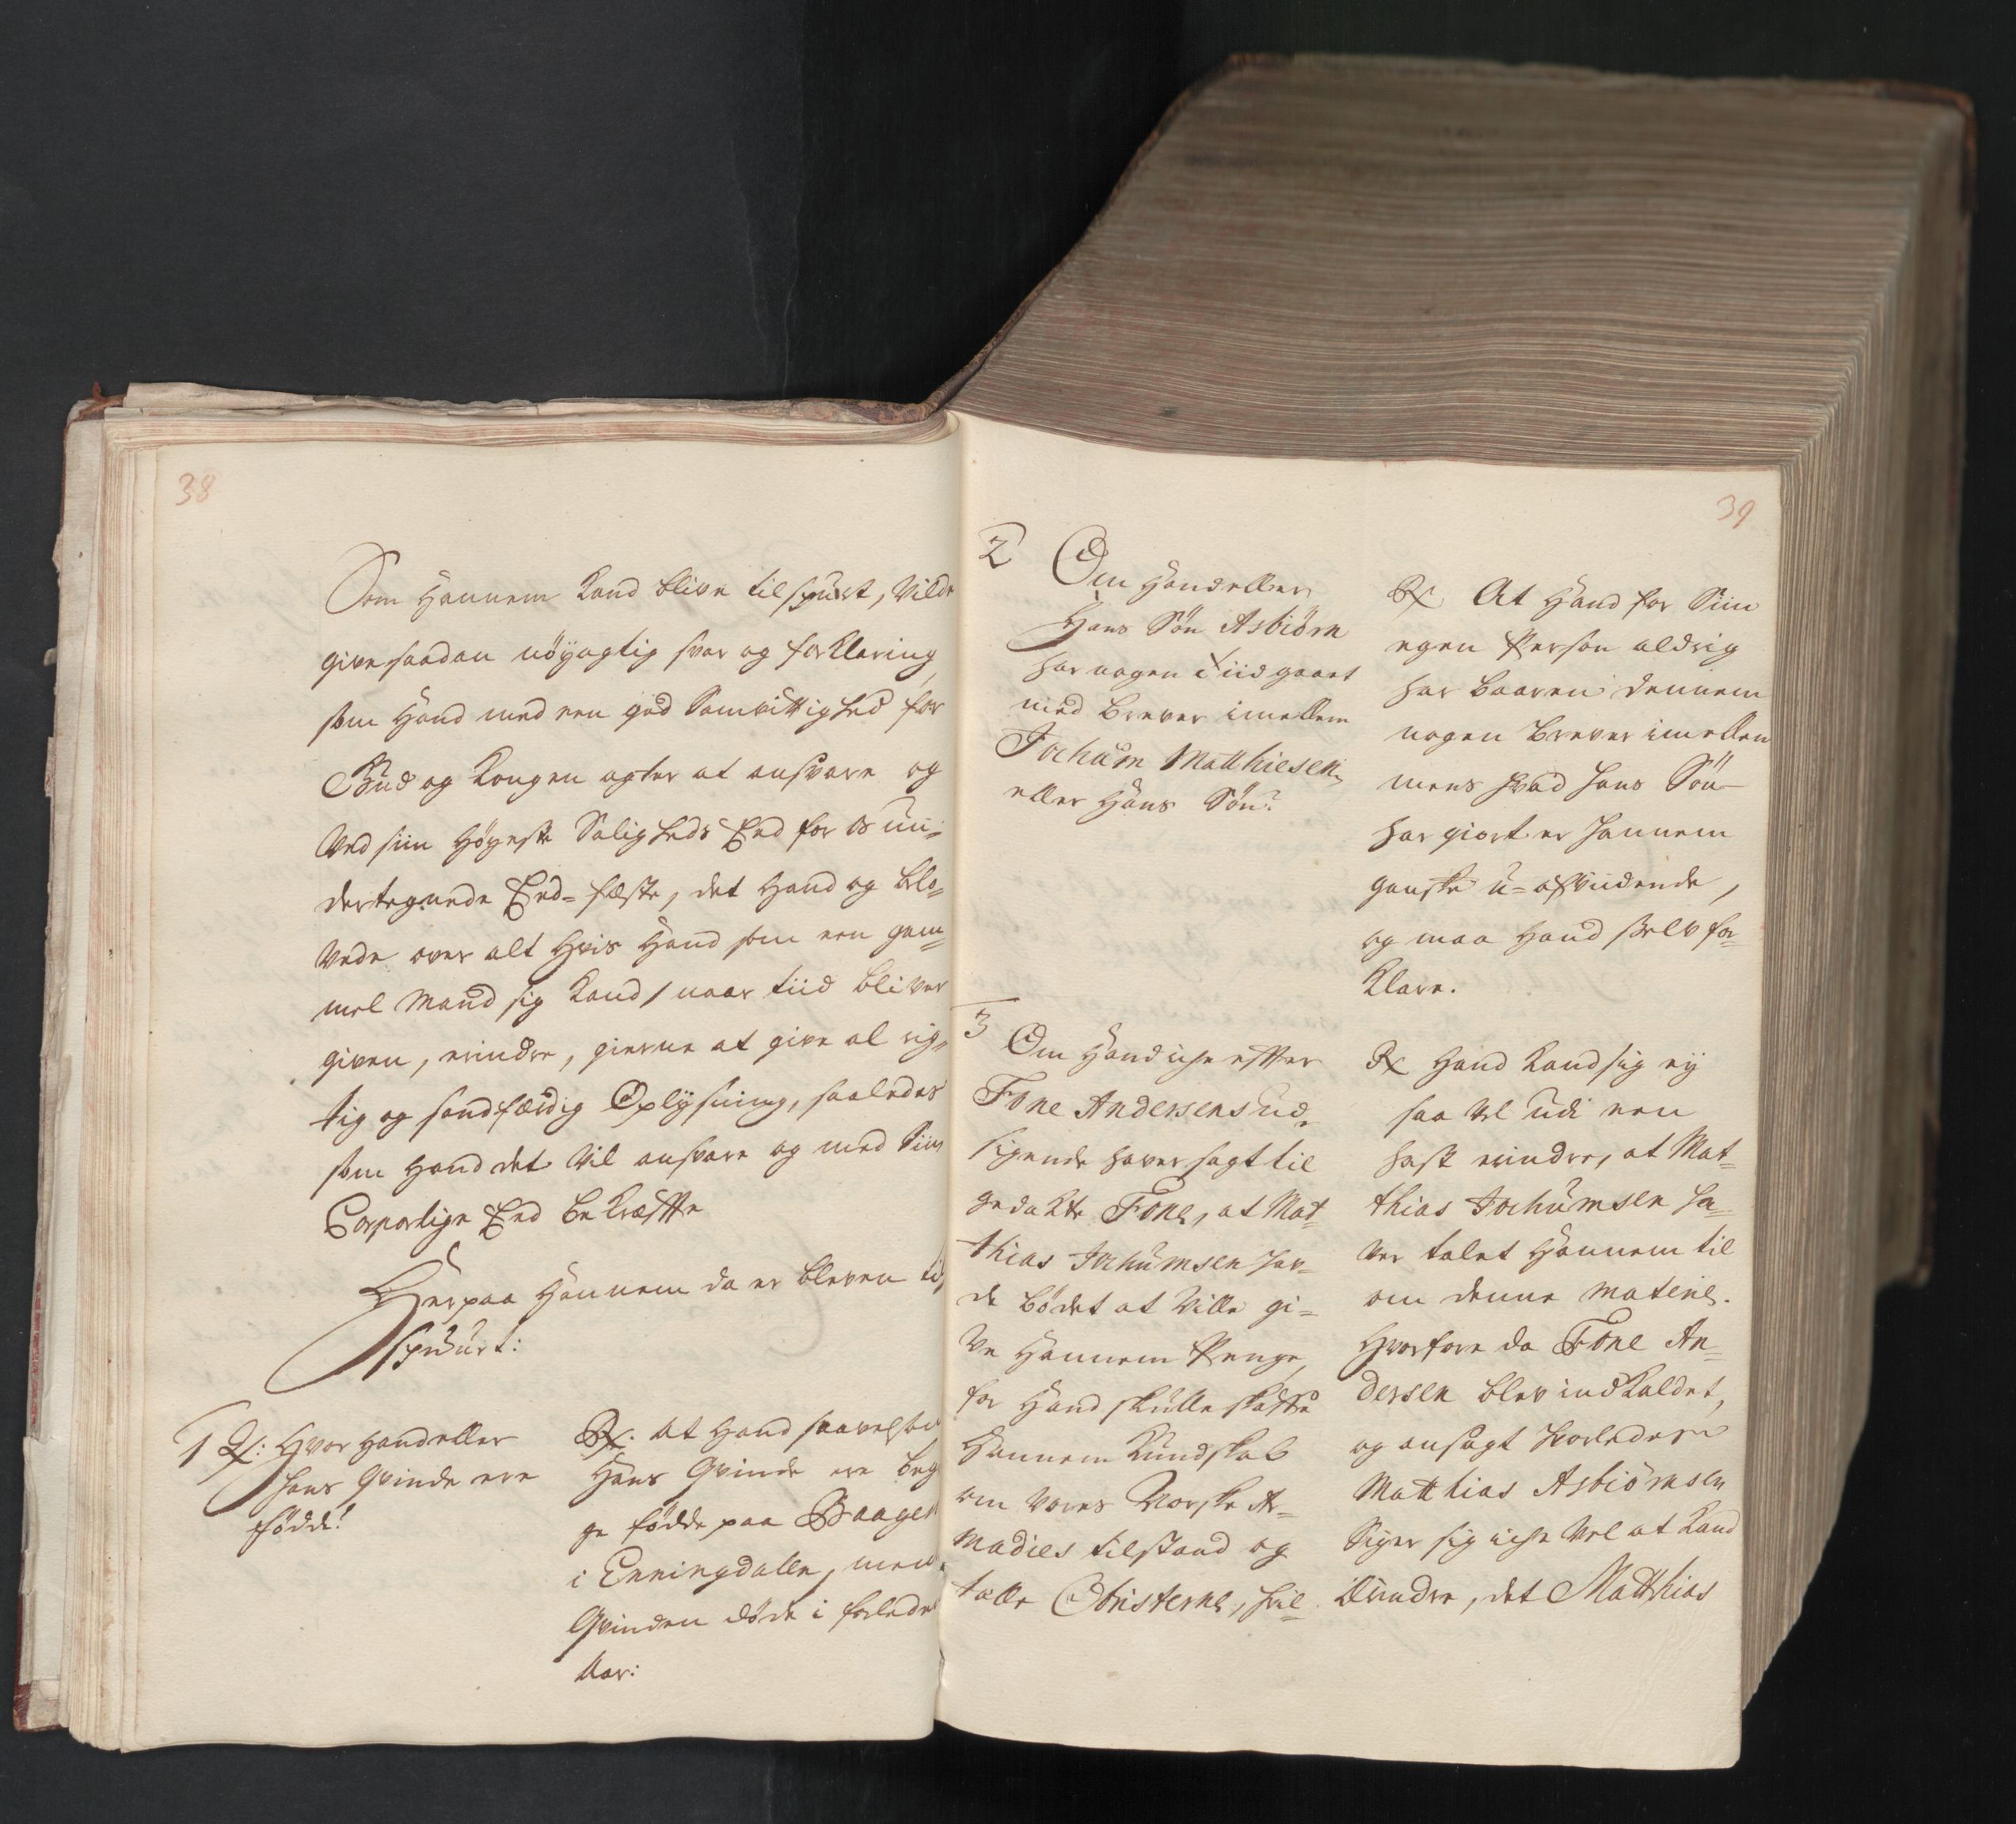 38
Som Hannem Kand blive tilspurt, Vilde
give saadan nöyagtig svar og forklaring,
som Hand med een god Samvittighed for
Gud og Kongen agter at ansvare og
Ved siin Höyeste Saligheds Eed for os un-
dertegnede Eed-fæste, det Hand og lo-
vede over alt Hvis Hand som een gam-
mel Mand sig Kand / naar tiid bliver
given, erindre, gierne at give al rig-
tig og sandfærdig Oplysning, saaledes
som Hand det Vil ansvare og med Siin
Corporlige Eed bekræffte
Herpaa Hannem da er bleven til
spuurt:
1 Q: Hvor Hand eller
hans Qvinde ere
födde?
Rx. At Hand saavelsom
Hans Qvinde ere beg
ge födde paa Baagen
i Enningdallen, men
Qvinden döde i forleden
Aar:
39
2 Om Hand eller
Hans Sön Asbiörn
har nogen Tiid gaaet
med Brever imellem
Jochum Matthiesen
eller Hans Sön?
Rx At Hand for Siin
egen Person aldrig
har baaren dennem
nogen Brever imellem
mens hvad hans Sön
har giort er hannem
ganske u-afviidende,
og maa Hand selv for-
klare.
3 Om Hand iche effter
Tone Andersens ud-
sigende haver sagt til
gedachte Tone, at Mat-
thias Jochumsen hav-
de bödet at Ville gi-
ve Hannem Penge,
for Hand skulle skaffe
Hannem Kundskab
om Vores Norske Ar-
madies tilstand og
talle Obristerne, hvil-
Rx Hand Kand sig ey
saa Vel udi een
hast erindre, at Mat-
thias Jochumsen ha-
ver talet Hannem til
om denne materie.
Hvorfore da Tone An-
dersen blev indkaldet,
og ansagt hvorledes
Matthias Asbiörnsen
Siger sig iche Vel at Kand
Erindre, det Matthias